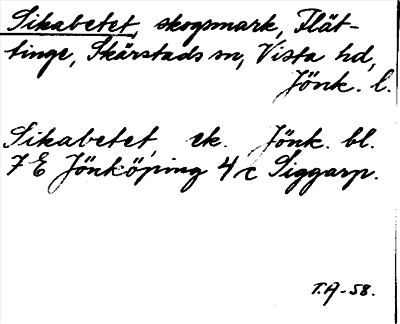 Sikabetet, skogsmark, Flät-
tinge, Skärstads sn, Vista hd,
Jönk. l.
Sikabetet, ek. Jönk. bl.
7 E Jönköping 4 c Siggarp.
T.A-58.